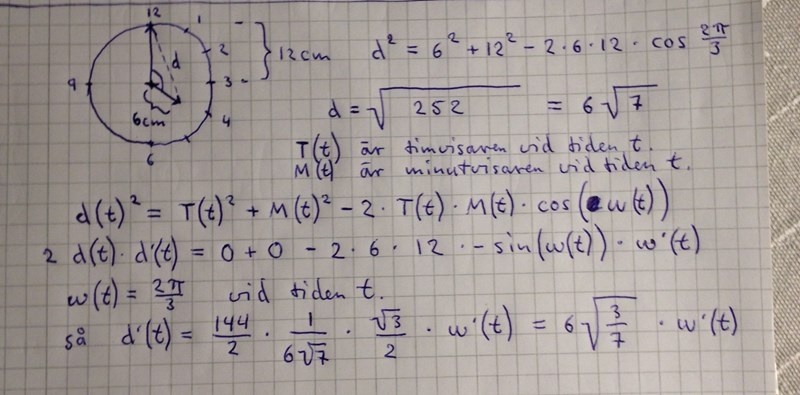 12
1
2
3
4
6
9
d
6cm
12cm
d² = 6² + 12² - 2·6·12 · cos 2π/3
d = √252 = 6√7
T(t) är timvisaren vid tiden t.
M(t) är minutvisaren vid tiden t.
d(t)² = T(t)² + M(t)² - 2 · T(t) · M(t) · cos(w(t))
2 d(t) · d'(t) = 0 + 0 - 2 · 6 · 12 · - sin(w(t)) · w'(t)
w(t) = 2π/3 vid tiden t.
så d'(t) = 144/2 · 1/6√7 · √3/2 · w'(t) = 6√3/7 · w'(t)